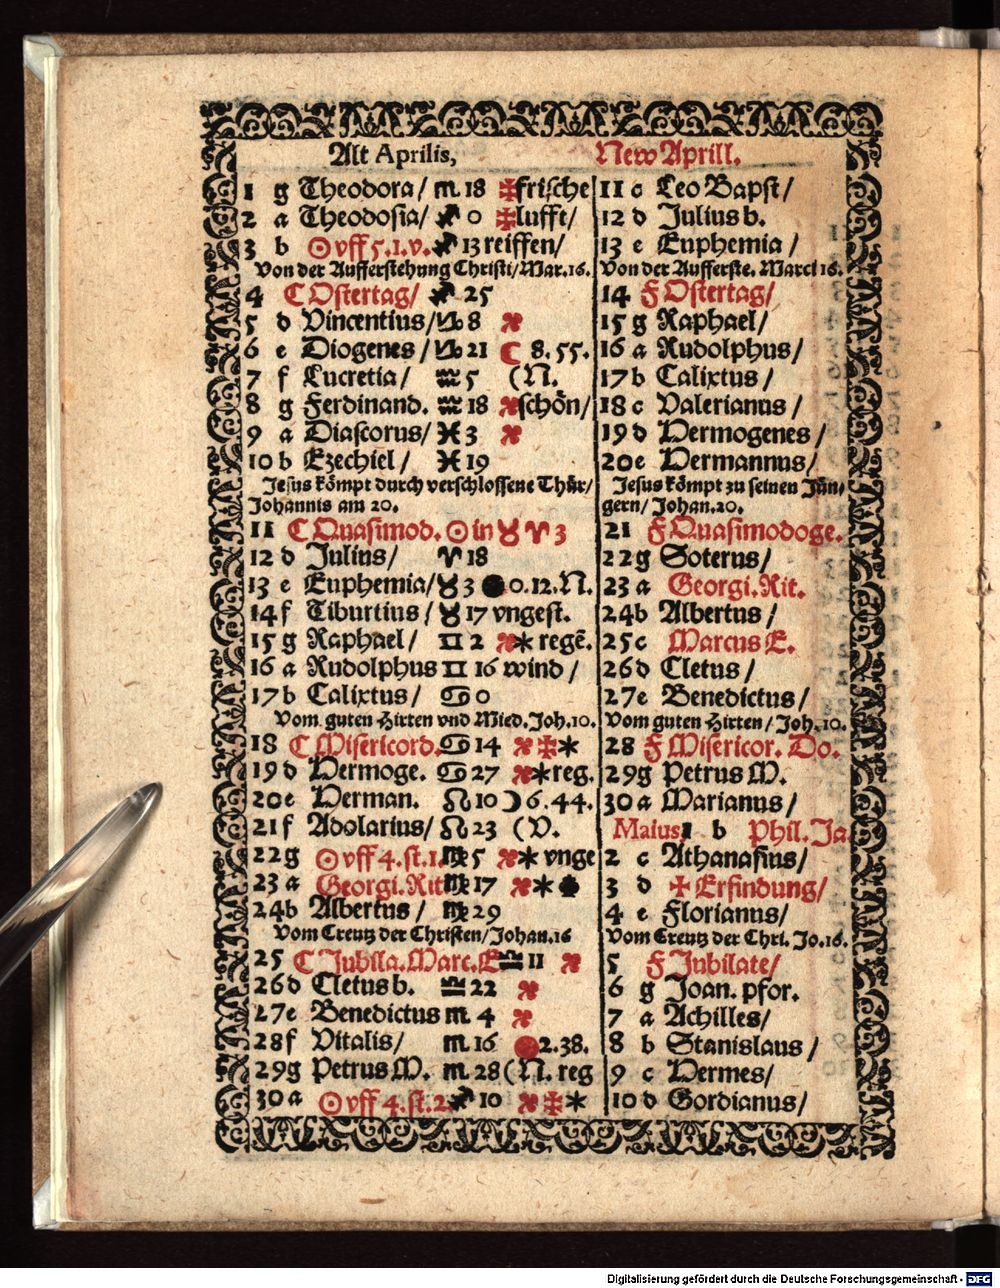 Alt Aprilis, New Aprill.
1 g Theodora/ ♏ 18 ✠frische 11 c Leo Bapst/
2 a Theodosia/ ♐ 0 ✠lufft/ 12 d Julius b.
3 b ☉ vff 5.1.v. ♐ 13 reiffen/ 13 e Euphemia/
Von der Aufferstehung Christi/Mar.16. Von der Aufferste. Marci 16.
4 C Ostertag/ ♐ 25 14 F Ostertag/
5 d Vincentius/ ♑ 8 15 g Raphael/
6 e Diogenes/ ♑ 21 ☾ 8.55. 16 a Rudolphus/
7 f Lucretia/ ♒ 5 (N. 17 b Calixtus/
8 g Ferdinand. ♒ 18 schön/ 18 c Valerianus/
9 a Diascorus/ ♓ 3 19 d Hermogenes/
10 b Ezechiel/ ♓ 19 20 e Hermannus/
Jesus kömpt durch verschlossene Thür/ Jesus kömpt zu seinen Jün-
Johannis am 20. gern/ Johan.20.
11 C Quasimod. ☉ in ♉ ♈ 3 21 F Quasimodoge.
12 d Julius/ ♈ 18 22 g Soterus/
13 e Euphemia/ ♉ 3 ● 0.12.N. 23 a Georgi.Rit.
14 f Tiburtius/ ♉ 17 vngest. 24 b Albertus/
15 g Raphael/ ♊ 2 * regẽ. 25 c Marcus E.
16 a Rudolphus ♊ 16 wind/ 26 d Cletus/
17 b Calixtus/ ♋ 0 27 e Benedictus/
Vom guten Hirten vnd Mied. Joh.10. Vom guten Hirten/ Joh.10.
18 C Misericord. ♋ 14 ✠ * 28 F Misericor. Do.
19 d Hermoge. ♋ 27 * reg. 29 g Petrus M.
20 e Herman. ♌ 10 ☽ 6.44. 30 a Marianus/
21 f Adolarius/ ♌ 23 (V. Maius 1 b Phil. Ja.
22 g ☉ vff 4.st.1. ♍ 5 * vnge 2 c Athanasius/
23 a Georgi.Rit ♍ 17 * 3 d ✠ Erfindung/
24 b Albertus/ ♍ 29 4 e Florianus/
Vom Creutz der Christen/Johan.16 Vom Creutz der Chri. Jo.16.
25 C Jubila.Marc.E ♎ 11 5 F Jubilate/
26 d Cletus b. ♎ 22 6 g Joan. pfor.
27 e Benedictus ♏ 4 7 a Achilles/
28 f Vitalis/ ♏ 16 ● 2.38. 8 b Stanislaus/
29 g Petrus M. ♏ 28 (N. reg 9 c Hermes/
30 a ☉ vff 4.st.2. ♐ 10 ✠ * 10 d Gordianus/
Digitalisierung gefördert durch die Deutsche Forschungsgemeinschaft - DFG